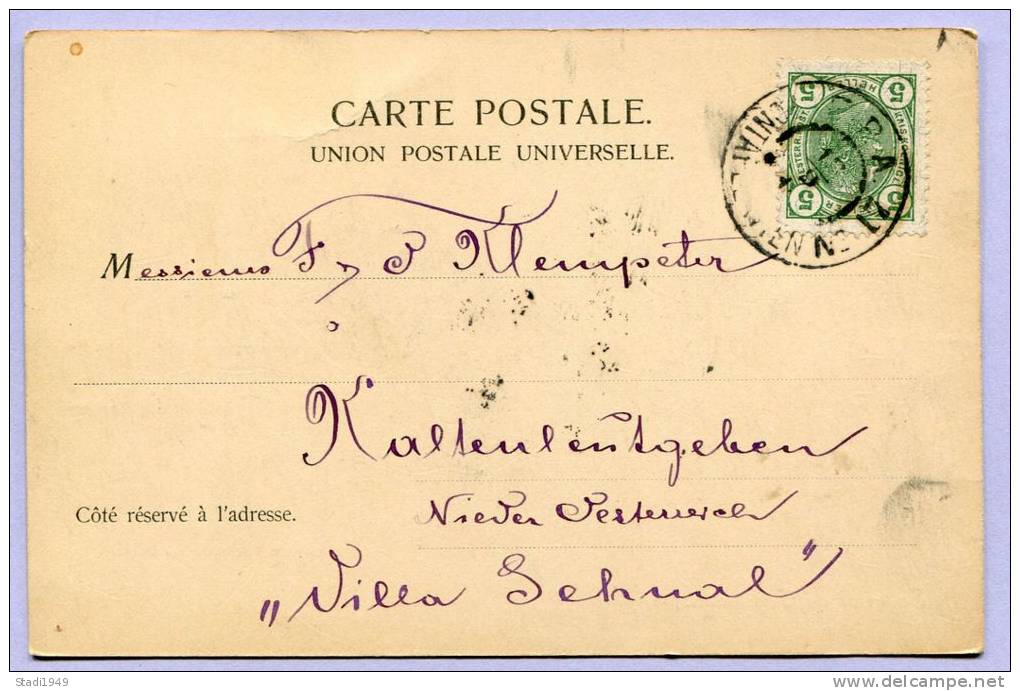 CARTE POSTALE.
UNION POSTALE UNIVERSELLE.
5 5
HELLER
5 5
Messieurs F, & S Klempeter
à
Kaltenleutgeben
Côté réservé à l'adresse.
Nieder Oesterreich
„Villa Schnal"
Stadi1949
delcampe.net